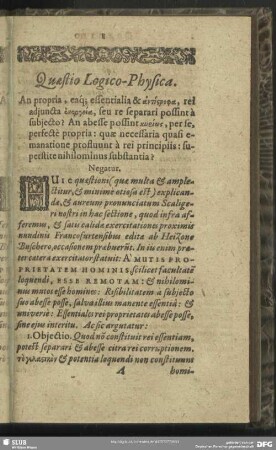 Quæstio Logico-Physica.
An propria, eaq; essentialia & ἀντίστροφα, rei
adjuncta seu re separari possint à
subjecto? An abesse possint per se,
perfectè propria: quæ necessariâ quasi e-
manatione profluunt à rei principiis: su-
perstite nihilominus substantia?
Negatur.
HUic quæstioni (quæ multa & ample-
ctitur, & minimè otiosa est) explican-
dæ, & aureum pronunciatum Scalige-
ri nostri in hac sectione, quod infra af-
feremus, & satis calida exercitationis proximis
nundinis Francofurtensibus edita ab Heizone
Buschero, occasionem præbuerunt. In ea enim præ-
ter cætera exercitator statuit: A MUTIS PRO-
PRIETATEM HOMINIS scilicet facultatē
loquendi, ESSE REMOTAM: & nihilomi-
nus mutos esse homines: Risibilitatem à subjecto
suo abesse posse, salva illius manente essentia: &
universè: Essentiales rei proprietates abesse posse,
sine ejus interitu. Ac sic argutatur:
1. Objectio. Quod nō constituit rei essentiam,
potest separari & abesse citra rei corruptionem.
& potentia loquendi non constituunt
A homi-
SLUB